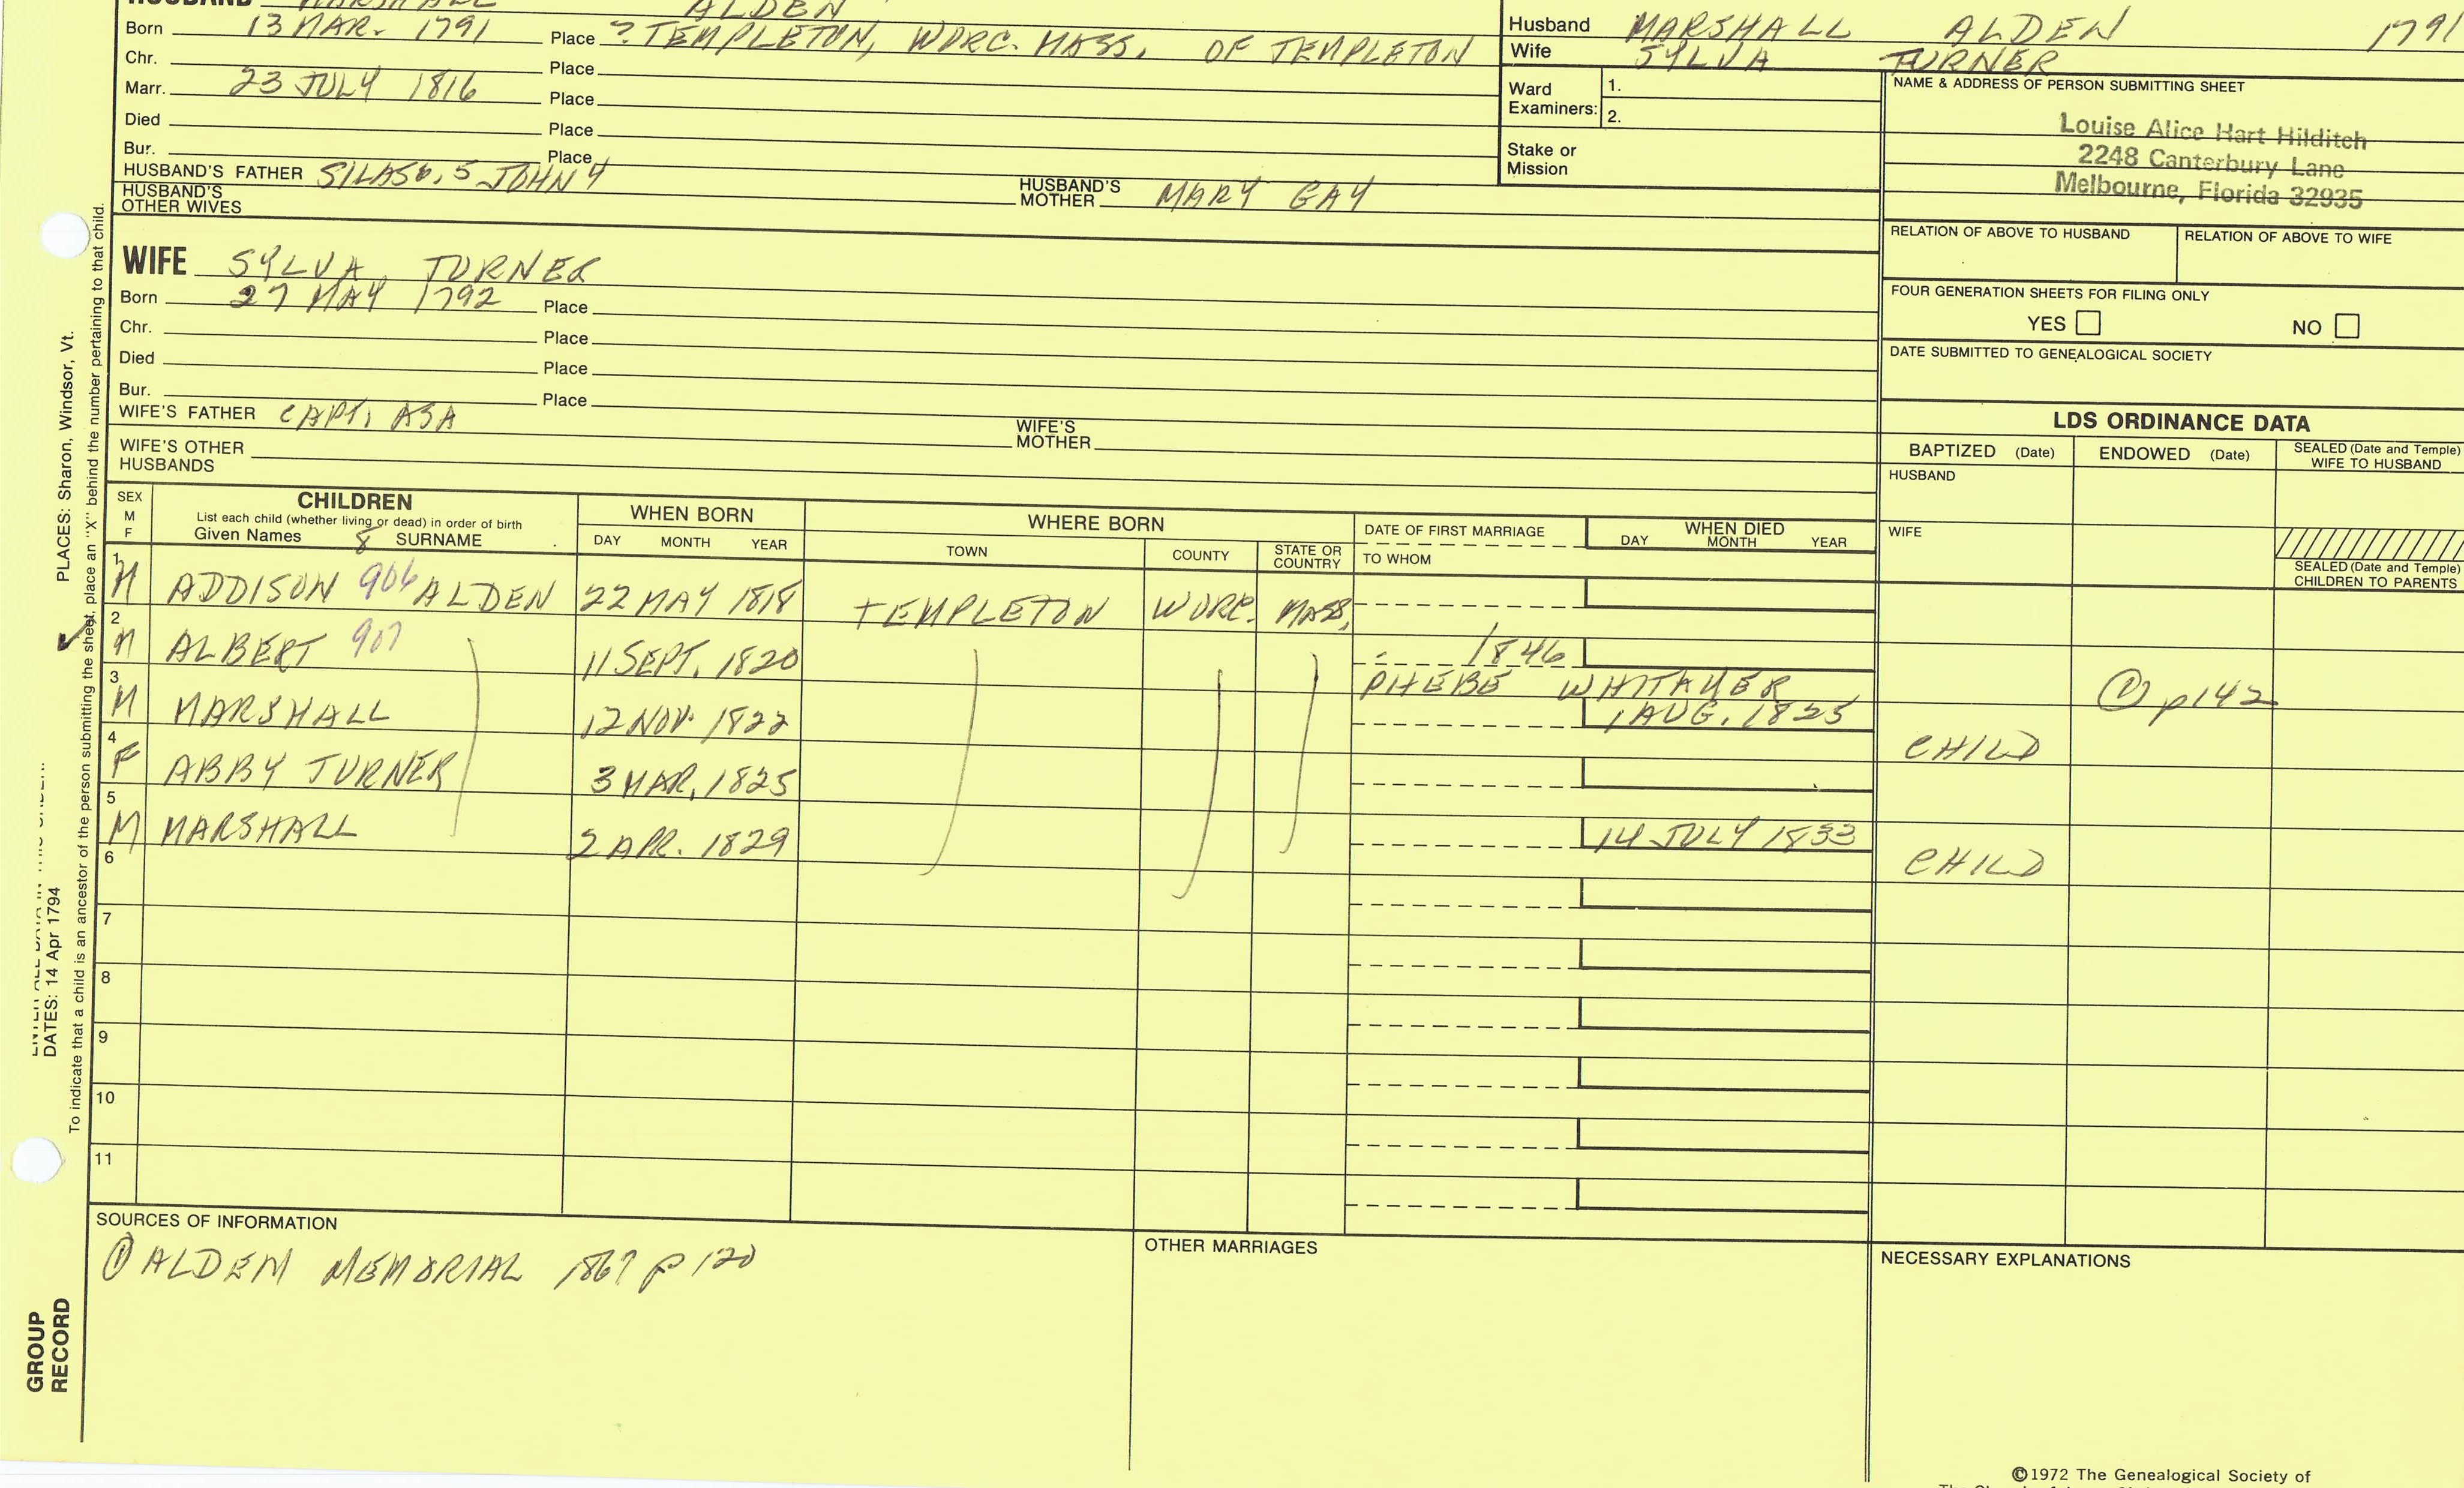 HUSBAND MARSHALL ALDEN
Born 13 MAR. 1791 Place ? TEMPLETON, WORC. MASS. OF TEMPLETON
Chr. Place
Marr. 23 JULY 1816 Place
Died Place
Bur. Place
HUSBAND'S FATHER SILAS 6, 5 JOHN 4 HUSBAND'S MOTHER MARY GAY
HUSBAND'S OTHER WIVES
Husband MARSHALL ALDEN 1791
Wife SYLVA TURNER
Ward Examiners: 1.
2.
Stake or Mission
NAME & ADDRESS OF PERSON SUBMITTING SHEET
Louise Alice Hart Hilditch
2248 Canterbury Lane
Melbourne, Florida 32935
RELATION OF ABOVE TO HUSBAND RELATION OF ABOVE TO WIFE
FOUR GENERATION SHEETS FOR FILING ONLY
YES NO
DATE SUBMITTED TO GENEALOGICAL SOCIETY
WIFE SYLVA TURNER
Born 27 MAY 1792 Place
Chr. Place
Died Place
Bur. Place
WIFE'S FATHER CAPT. ASA WIFE'S MOTHER
WIFE'S OTHER HUSBANDS
LDS ORDINANCE DATA
BAPTIZED (Date) ENDOWED (Date) SEALED (Date and Temple) WIFE TO HUSBAND
HUSBAND
WIFE
SEALED (Date and Temple) CHILDREN TO PARENTS
SEX M F
CHILDREN
List each child (whether living or dead) in order of birth
Given Names 8 SURNAME
WHEN BORN
DAY MONTH YEAR
WHERE BORN
TOWN COUNTY STATE OR COUNTRY
DATE OF FIRST MARRIAGE
TO WHOM
WHEN DIED
DAY MONTH YEAR
1 M ADDISON 906 ALDEN 22 MAY 1818 TEMPLETON WORC. MASS.
2 M ALBERT 907 11 SEPT. 1820 1846
PHEBE WHITAKER ① p142
3 M MARSHALL 12 NOV. 1822 1 AUG. 1825 CHILD
4 F ABBY TURNER 3 MAR. 1825
5 M MARSHALL 2 APR. 1829 14 JULY 1833 CHILD
6
7
8
9
10
11
SOURCES OF INFORMATION
① ALDEN MEMORIAL 1867 p 120
OTHER MARRIAGES
NECESSARY EXPLANATIONS
©1972 The Genealogical Society of
PLACES: Sharon, Windsor, Vt.
DATES: 14 Apr 1794
To indicate that a child is an ancestor of the person submitting the sheet, place an "X" behind the number pertaining to that child.
GROUP
RECORD